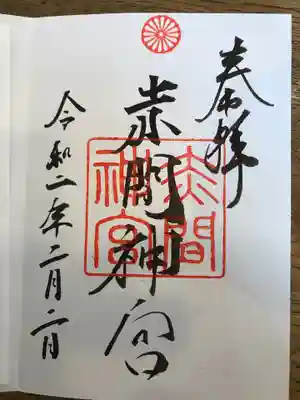 奉拝
赤間神宮
赤間
神宮
令和二年二月二日